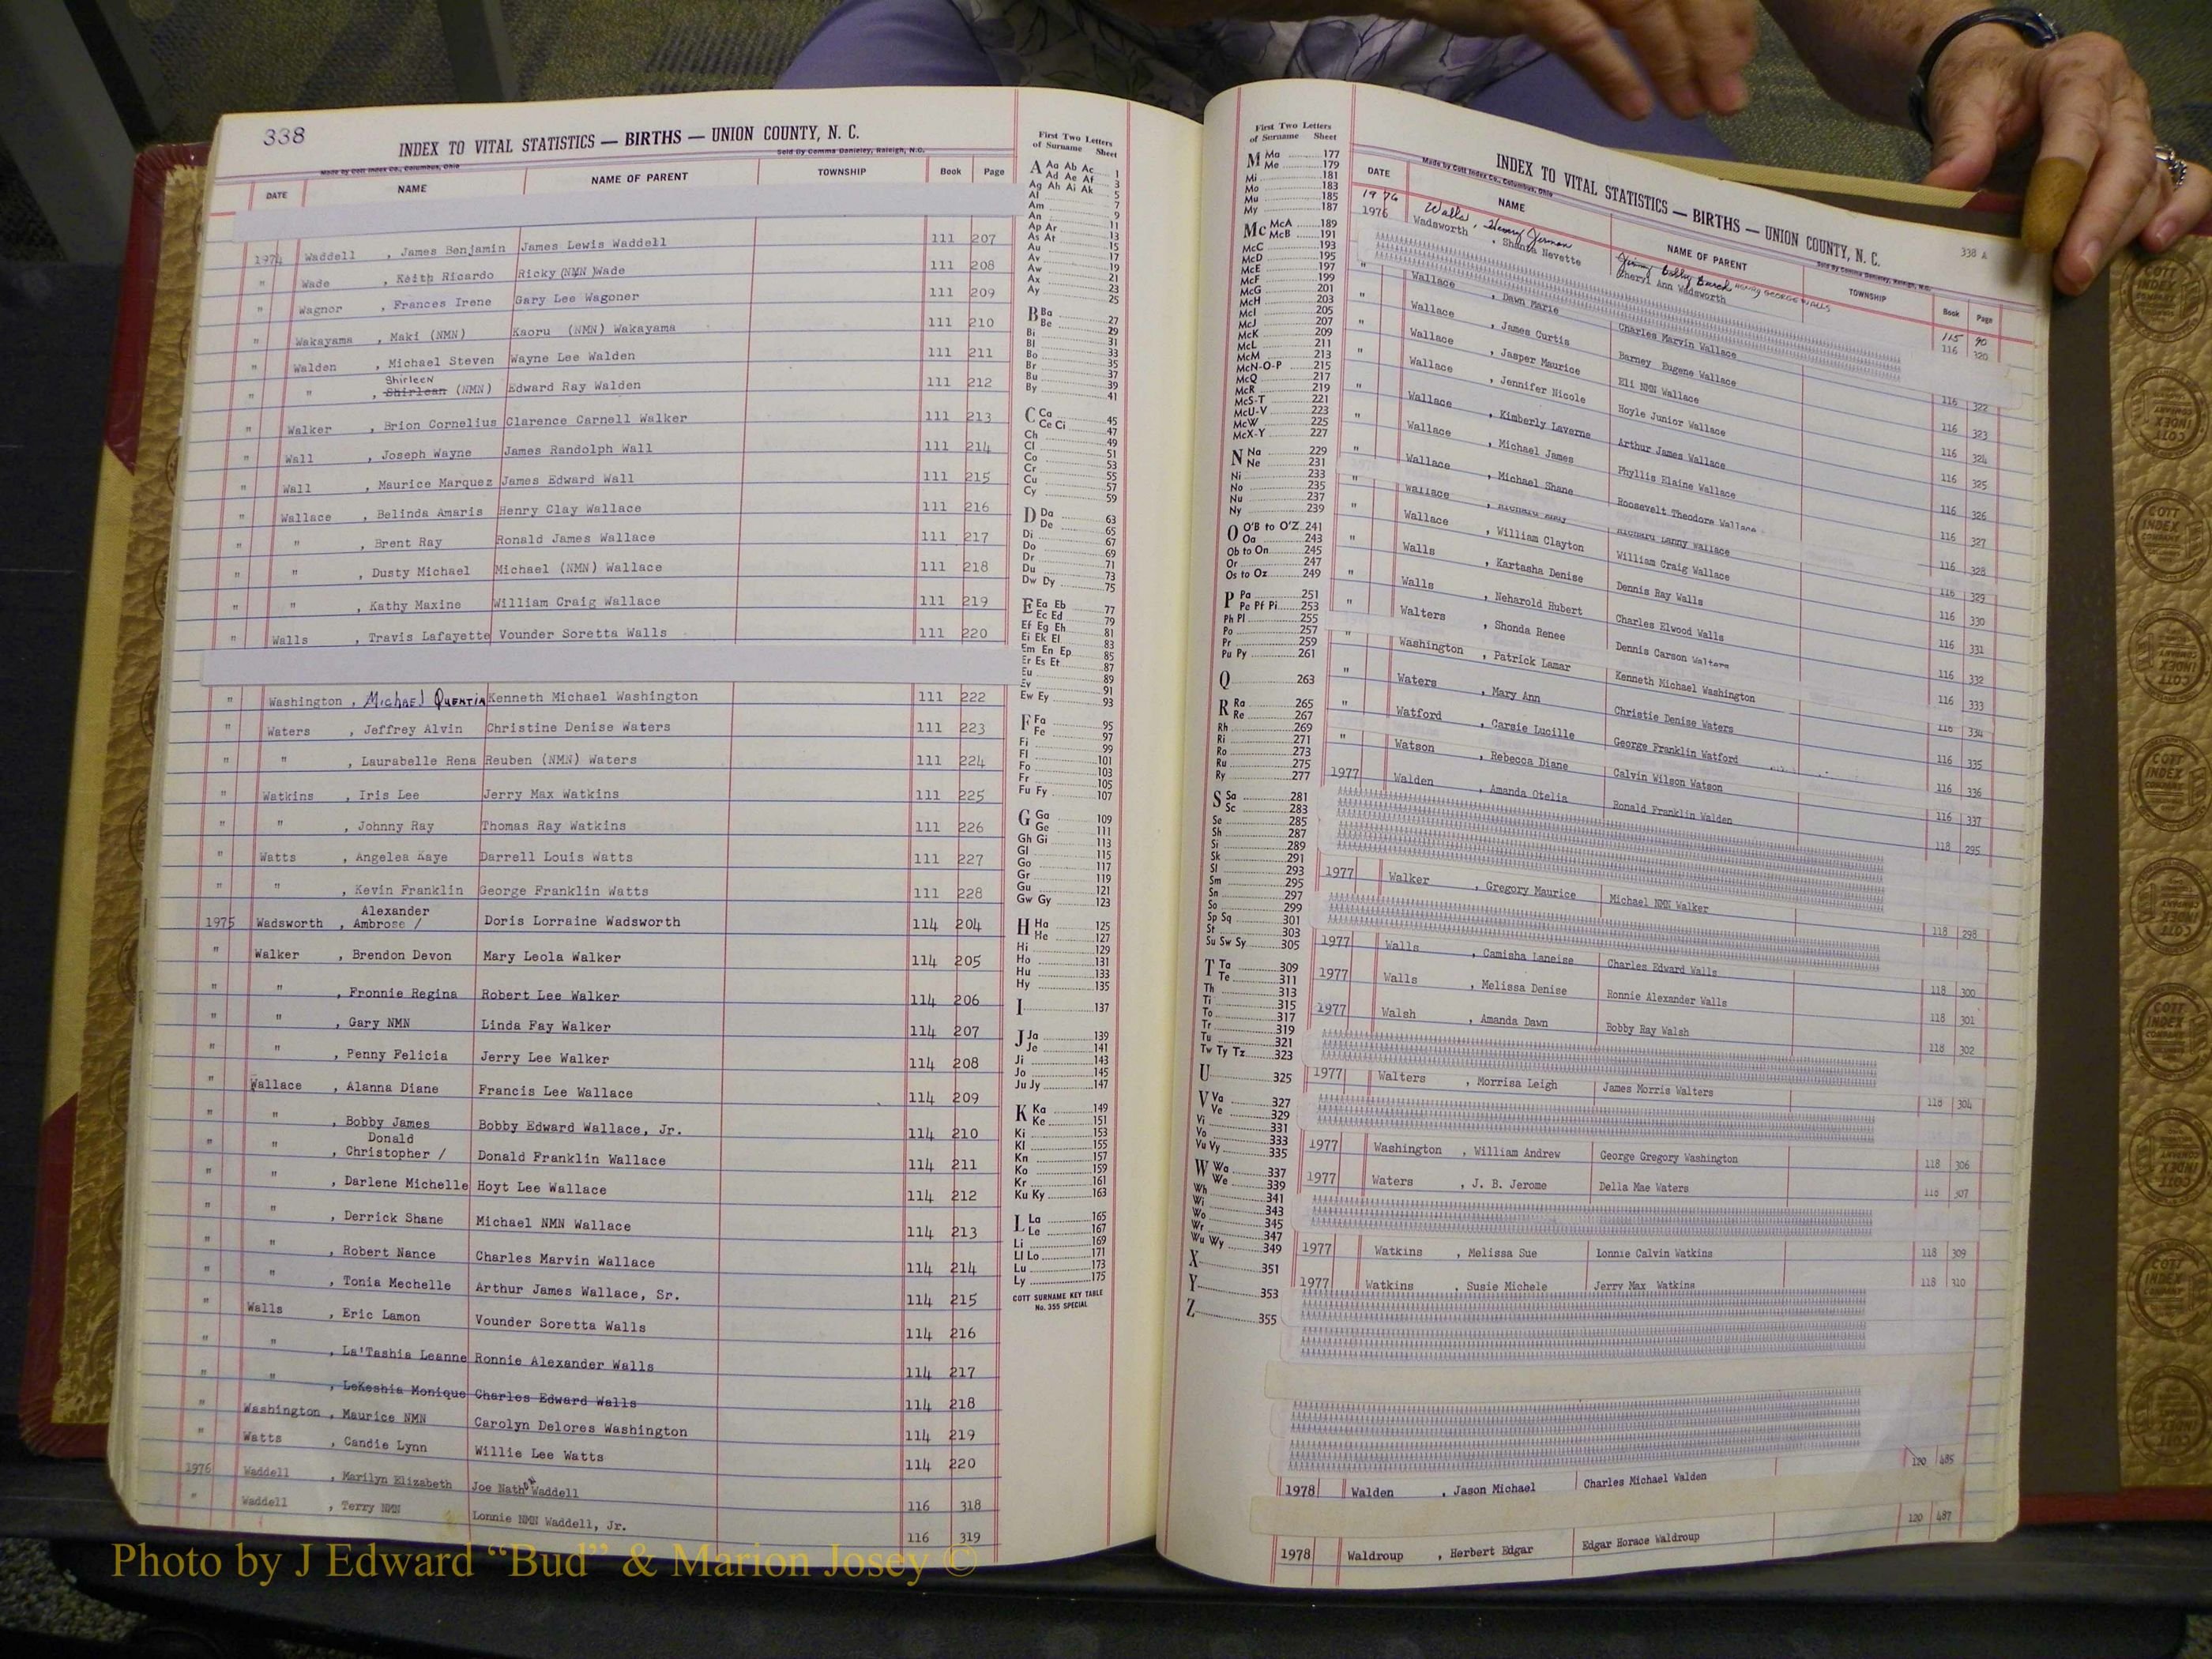 338
INDEX TO VITAL STATISTICS — BIRTHS — UNION COUNTY, N. C.
Made by Cott Index Co., Columbus, Ohio
Sold By Comma Danieley, Raleigh, N.C.
DATE NAME NAME OF PARENT TOWNSHIP Book Page
1974 Waddell , James Benjamin James Lewis Waddell 111 207
" Wade , Keith Ricardo Ricky (NMN) Wade 111 208
" Wagnor , Frances Irene Gary Lee Wagoner 111 209
" Wakayama , Maki (NMN) Kaoru (NMN) Wakayama 111 210
" Walden , Michael Steven Wayne Lee Walden 111 211
Shirleen
" " , Shirlean (NMN) Edward Ray Walden 111 212
" Walker , Brion Cornelius Clarence Carnell Walker 111 213
" Wall , Joseph Wayne James Randolph Wall 111 214
" Wall , Maurice Marquez James Edward Wall 111 215
" Wallace , Belinda Amaris Henry Clay Wallace 111 216
" " , Brent Ray Ronald James Wallace 111 217
" " , Dusty Michael Michael (NMN) Wallace 111 218
" " , Kathy Maxine William Craig Wallace 111 219
" Walls , Travis Lafayette Vounder Soretta Walls 111 220
" Washington , Michael Quentin Kenneth Michael Washington 111 222
" Waters , Jeffrey Alvin Christine Denise Waters 111 223
" " , Laurabelle Rena Reuben (NMN) Waters 111 224
" Watkins , Iris Lee Jerry Max Watkins 111 225
" " , Johnny Ray Thomas Ray Watkins 111 226
" Watts , Angelea Kaye Darrell Louis Watts 111 227
" " , Kevin Franklin George Franklin Watts 111 228
Alexander
1975 Wadsworth , Ambrose / Doris Lorraine Wadsworth 114 204
" Walker , Brendon Devon Mary Leola Walker 114 205
" " , Fronnie Regina Robert Lee Walker 114 206
" " , Gary NMN Linda Fay Walker 114 207
" " , Penny Felicia Jerry Lee Walker 114 208
" Wallace , Alanna Diane Francis Lee Wallace 114 209
" " , Bobby James Bobby Edward Wallace, Jr. 114 210
Donald
" " , Christopher / Donald Franklin Wallace 114 211
" " , Darlene Michelle Hoyt Lee Wallace 114 212
" " , Derrick Shane Michael NMN Wallace 114 213
" " , Robert Nance Charles Marvin Wallace 114 214
" " , Tonia Mechelle Arthur James Wallace, Sr. 114 215
" Walls , Eric Lamon Vounder Soretta Walls 114 216
" " , La'Tashia Leanne Ronnie Alexander Walls 114 217
" " , LeKeshia Monique Charles Edward Walls 114 218
" Washington , Maurice NMN Carolyn Delores Washington 114 219
" Watts , Candie Lynn Willie Lee Watts 114 220
1976 Waddell , Marilyn Elizabeth Joe Nathan Waddell 116 318
" Waddell , Terry NMN Lonnie NMN Waddell, Jr. 116 319
First Two Letters
of Surname Sheet
A Aa Ab Ac 1
Ad Ae Af 3
Ag Ah Ai Ak 5
Al 7
Am 9
An 11
Ap Ar 13
As At 15
Au 17
Av 19
Aw 21
Ax 23
Ay 25
B Ba 27
Be 29
Bi 31
Bl 33
Bo 35
Br 37
Bu 39
By 41
C Ca 45
Ce Ci 47
Ch 49
Cl 51
Co 53
Cr 55
Cu 57
Cy 59
D Da 63
De 65
Di 67
Do 69
Dr 71
Du 73
Dw Dy 75
E Ea Eb 77
Ec Ed 79
Ef Eg Eh 81
Ei Ek El 83
Em En Ep 85
Er Es Et 87
Eu 89
Ev 91
Ew Ey 93
F Fa 95
Fe 97
Fi 99
Fl 101
Fo 103
Fr 105
Fu Fy 107
G Ga 109
Ge 111
Gh Gi 113
Gl 115
Go 117
Gr 119
Gu 121
Gw Gy 123
H Ha 125
He 127
Hi 129
Ho 131
Hu 133
Hy 135
I 137
J Ja 139
Je 141
Ji 143
Jo 145
Ju Jy 147
K Ka 149
Ke 151
Ki 153
Kl 155
Kn 157
Ko 159
Kr 161
Ku Ky 163
L La 165
Le 167
Li 169
Ll Lo 171
Lu 173
Ly 175
COTT SURNAME KEY TABLE
No. 355 SPECIAL
First Two Letters
of Surname Sheet
M Ma 177
Me 179
Mi 181
Mo 183
Mu 185
My 187
Mc McA 189
McB 191
McC 193
McD 195
McE 197
McF 199
McG 201
McH 203
McI 205
McJ 207
McK 209
McL 211
McM 213
McN-O-P 215
McQ 217
McR 219
McS-T 221
McU-V 223
McW 225
McX-Y 227
N Na 229
Ne 231
Ni 233
No 235
Nu 237
Ny 239
O O'B to O'Z 241
Oa 243
Ob to On 245
Or 247
Os to Oz 249
P Pa 251
Pe Pf Pi 253
Ph Pl 255
Po 257
Pr 259
Pu Py 261
Q 263
R Ra 265
Re 267
Rh 269
Ri 271
Ro 273
Ru 275
Ry 277
S Sa 281
Sc 283
Se 285
Sh 287
Si 289
Sk 291
Sl 293
Sm 295
Sn 297
So 299
Sp Sq 301
St 303
Su Sw Sy 305
T Ta 309
Te 311
Th 313
Ti 315
To 317
Tr 319
Tu 321
Tw Ty Tz 323
U 325
V Va 327
Ve 329
Vi 331
Vo 333
Vu Vy 335
W Wa 337
We 339
Wh 341
Wi 343
Wo 345
Wr 347
Wu Wy 349
X 351
Y 353
Z 355
338 A
INDEX TO VITAL STATISTICS — BIRTHS — UNION COUNTY, N. C.
Made by Cott Index Co., Columbus, Ohio
Sold By Comma Danieley, Raleigh, N.C.
DATE NAME NAME OF PARENT TOWNSHIP Book Page
1976 Walls, Henry Jermon HENRY GEORGE WALLS 115 90
1976 Wadsworth , Shanta Nevette Cheryl Ann Wadsworth 116 320
" Wallace , Dawn Marie Charles Marvin Wallace 116 322
" Wallace , James Curtis Barney Eugene Wallace 116 323
" Wallace , Jasper Maurice Eli NMN Wallace 116 324
" Wallace , Jennifer Nicole Hoyle Junior Wallace 116 325
" Wallace , Kimberly Laverne Arthur James Wallace 116 326
" Wallace , Michael James Phyllis Elaine Wallace 116 327
" Wallace , Michael Shane Roosevelt Theodore Wallace 116 328
" Wallace , Richard Lanny Wallace 116 329
" Wallace , William Clayton William Craig Wallace 116 330
" Walls , Kartasha Denise Dennis Ray Walls 116 331
" Walls , Neharold Hubert Charles Elwood Walls 116 332
" Walters , Shonda Renee Dennis Carson Walters 116 333
" Washington , Patrick Lamar Kenneth Michael Washington 116 334
" Waters , Mary Ann Christie Denise Waters 116 335
" Watford , Carsie Lucille George Franklin Watford 116 336
" Watson , Rebecca Diane Calvin Wilson Watson 116 337
1977 Walden , Amanda Otelia Ronald Franklin Walden 118 295
1977 Walker , Gregory Maurice Michael NMN Walker 118 298
1977 Walls , Camisha Laneise Charles Edward Walls 118 300
1977 Walls , Melissa Denise Ronnie Alexander Walls 118 301
1977 Walsh , Amanda Dawn Bobby Ray Walsh 118 302
1977 Walters , Morrisa Leigh James Morris Walters 118 304
1977 Washington , William Andrew George Gregory Washington 118 306
1977 Waters , J. B. Jerome Della Mae Waters 118 307
1977 Watkins , Melissa Sue Lonnie Calvin Watkins 118 309
1977 Watkins , Susie Michele Jerry Max Watkins 118 310
1978 Walden , Jason Michael Charles Michael Walden 120 485
1978 Waldroup , Herbert Edgar Edgar Horace Waldroup 120 487
Photo by J Edward “Bud” & Marion Josey ©